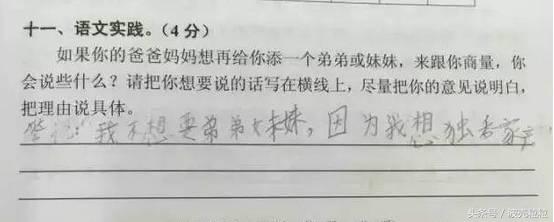 十一、语文实践。(4分)
如果你的爸爸妈妈想再给你添一个弟弟或妹妹，来跟你商量，你
会说些什么？请把你想要说的话写在横线上，尽量把你的意见说明白，
把理由说具体。
我不想要弟弟女未妹，因为我想独吞家产
头条号/波光粒粒